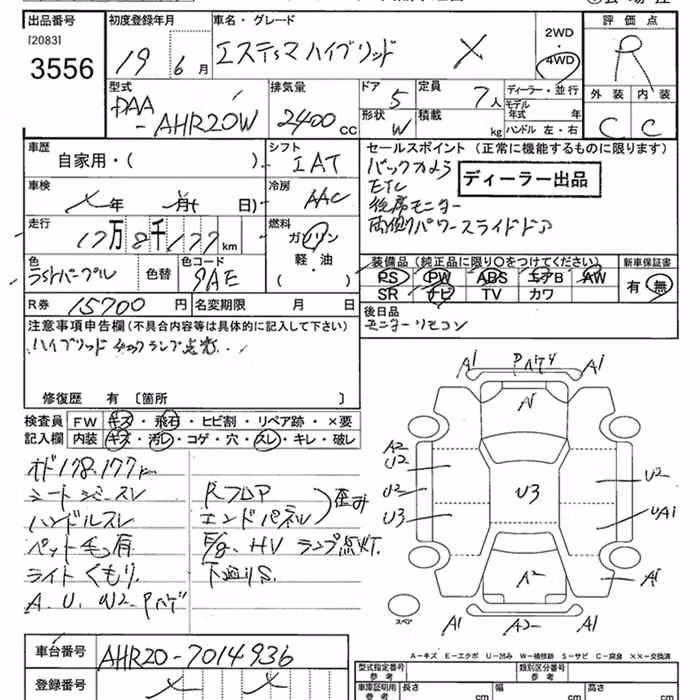 出品番号 初度登録年月 車名・グレード 2WD 評価点
[2083] 4WD
3556 19 6月 エスティマハイブリッド X R
型式 排気量 ドア 定員 ディーラー・並行 外装 内装
DAA 5 7人 モデル年式 年
-AHR20W 2400cc 形状 W 積載 kg ハンドル 左・右 C C
車歴 シフト セールスポイント(正常に機能するものに限ります)
自家用・( ) IAT バックカメラ
ETC ディーラー出品
車検 冷房 後席モニター
年 月( 日) AAC 両側パワースライドドア
走行 燃料
17万8千177km ガソリン 装備品(純正品に限り○をつけてください) 新車保証書
色 色コード 軽・油 PS PW ABS エアB AW 有 無
色替 9AE ( ) SR ナビ TV カワ
R券 15700円 名変期限 月 日 後日品
注意事項申告欄(不具合内容等は具体的に記入して下さい) モニターリモコン
ハイブリッド
修復歴 有 〔箇所 〕
検査員 FW キズ・飛石・ヒビ割・リペア跡・×要
記入欄 内装 キズ・汚レ・コゲ・穴・スレ・キレ・破レ
オド178.177km Rフロア
シートジースレ エンドパネル 歪み
ハンドルスレ E/g、HV ランプ点灯
ペット毛有 下廻りS
ライトくもり
A.U.W2.Pハゲ
A1 A1
A2
U2 U2
U2 U3
U3 UA1
A2 A1
スペア A1 A2 A1
A-キズ E-エクボ U-凹み W-補修跡 S-サビ C-腐食 ××-交換済
車台番号 AHR20-7014936
登録番号
型式指定番号 参考 類別区分番号 参考
車庫証明用 参考 長さ cm 幅 cm 高さ cm